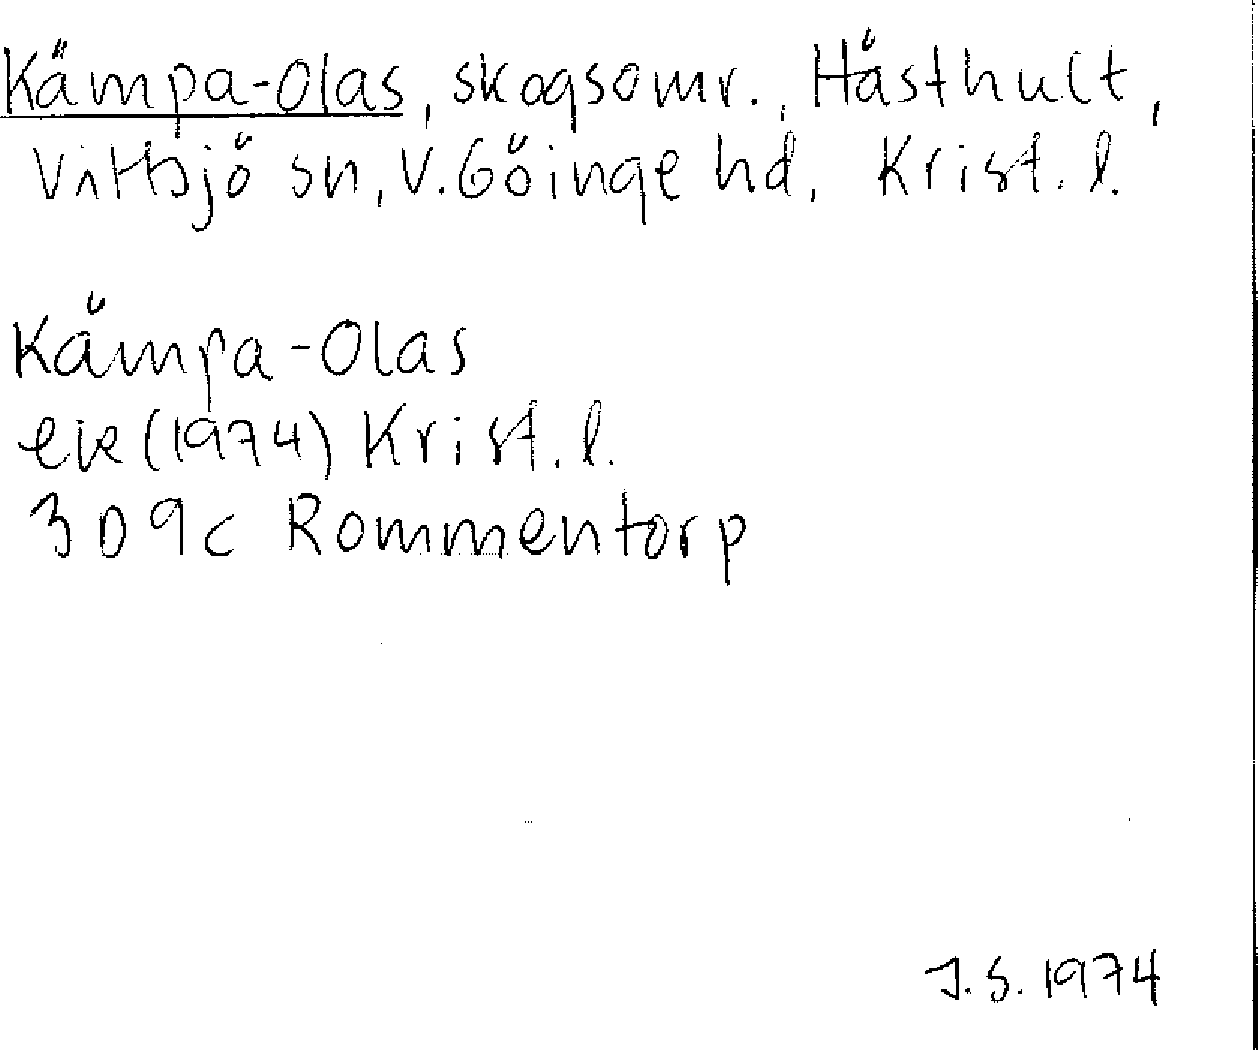 Kämpa-Olas, skogsomr., Hästhult,
Vittsjö sn, V. Göinge hd, Krist. l.
Kämpa-Olas
ek (1974) Krist. l.
3D 9c Rommentorp
J.S. 1974